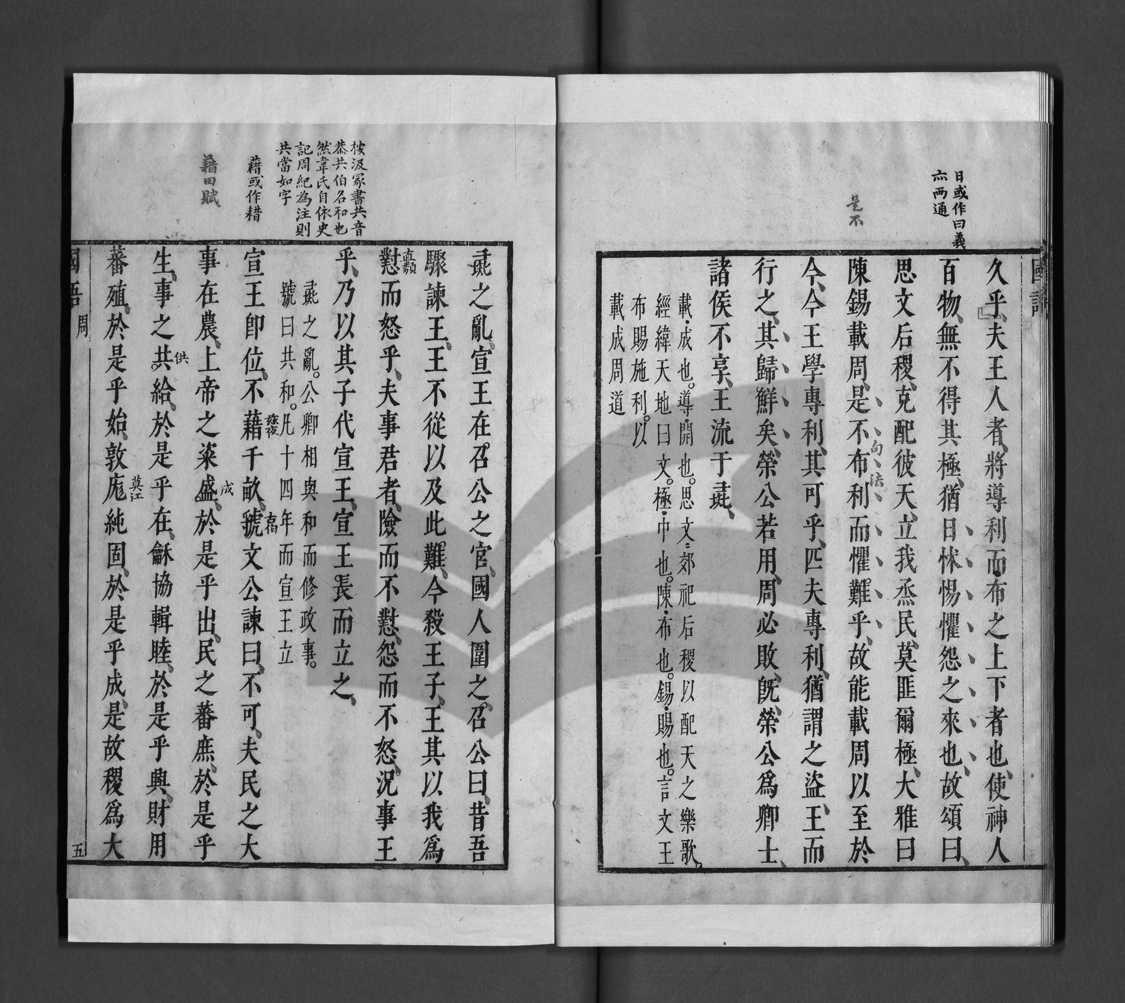 國語
日或作曰義
亦兩通
是不
久乎、夫王人者、將導利而布之上下者也、使神人
百物、無不得其極、猶日怵惕懼怨之來也、故頌曰、
思文后稷、克配彼天、立我烝民、莫匪爾極、大雅曰
陳錫載周、是不布利而懼難乎、故能載周以至於
句法
今、今王學專利、其可乎、匹夫專利、猶謂之盜、王而
行之、其歸鮮矣、榮公若用、周必敗、旣、榮公爲卿士、
諸侯不享、王流于彘、
載、成也。導、開也。思文、郊祀后稷以配天之樂歌。
經緯天地曰文。極、中也。陳、布也。錫、賜也。言文王
布賜施利。以
載成周道
按汲冢書共音
恭共伯名和也
然韋氏自依史
記周紀為注則
共當如字
藉或作耤
藉田賦
彘之亂、宣王在召公之官、國人圍之、召公曰、昔吾
驟諫王、王不從以及此難、今殺王子、王其以我爲
懟而怒乎、夫事君者、險而不懟、怨而不怒、況事王
乎、乃以其子代宣王、宣王長而立之、
彘之亂。公卿相與和而修政事。
號曰共和。凡十四年而宣王立
宣王卽位、不藉千畝、虢文公諫曰、不可、夫民之大
事在農、上帝之粢盛、於是乎出、民之蕃庶、於是乎
成
生、事之共給、於是乎在、龢協輯睦、於是乎興、財用
供
蕃殖、於是乎始、敦庬純固、於是乎成、是故稷爲大
莫江
國語 周
五